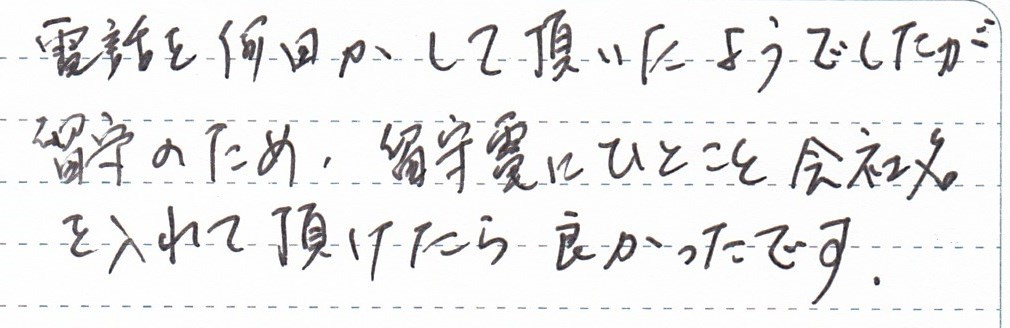 電話を何回かして頂いたようでしたが
留守のため、留守電にひとこと会社名
を入れて頂けたら良かったです.